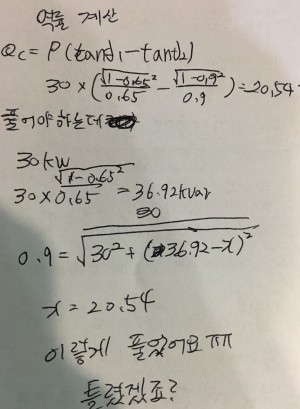 역률 계산
Qc = P(tanθ₁-tanθ₂)
30 × (√1-0.65²/0.65 - √1-0.9²/0.9) = 20.54
풀어야 하는데
30kW
30 × √1-0.65²/0.65 = 36.92kvar
0.9 = 30/√30² + (36.92-x)²
x = 20.54
이렇게 풀었어요 ㅠㅠ
틀렸겠죠?